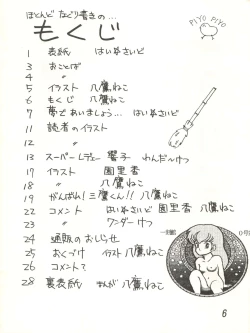 ほとんど なぐり書きの…
PIYO PIYO
もくじ
1 表紙 はいぬさいど
3 おことば
4 〃
5 イラスト 八鷹ねこ
6 もくじ 八鷹ねこ
7 夢であいましょう… はいぬさいど
11 読者のイラスト
12 〃
13 スーパーLディー 響子 わんだーけっ
17 イラスト 園里香
18 〃 八鷹ねこ
19 がんばれ!三鷹くん!! 八鷹ねこ
22 コメント はいぬさいど 園里香 八鷹ねこ
23 〃 ワンダーけっ
24 通販のおしらせ
25 おくづけ イラスト 八鷹ねこ
26 コメント2
28 裏表紙 まんが 八鷹ねこ
6